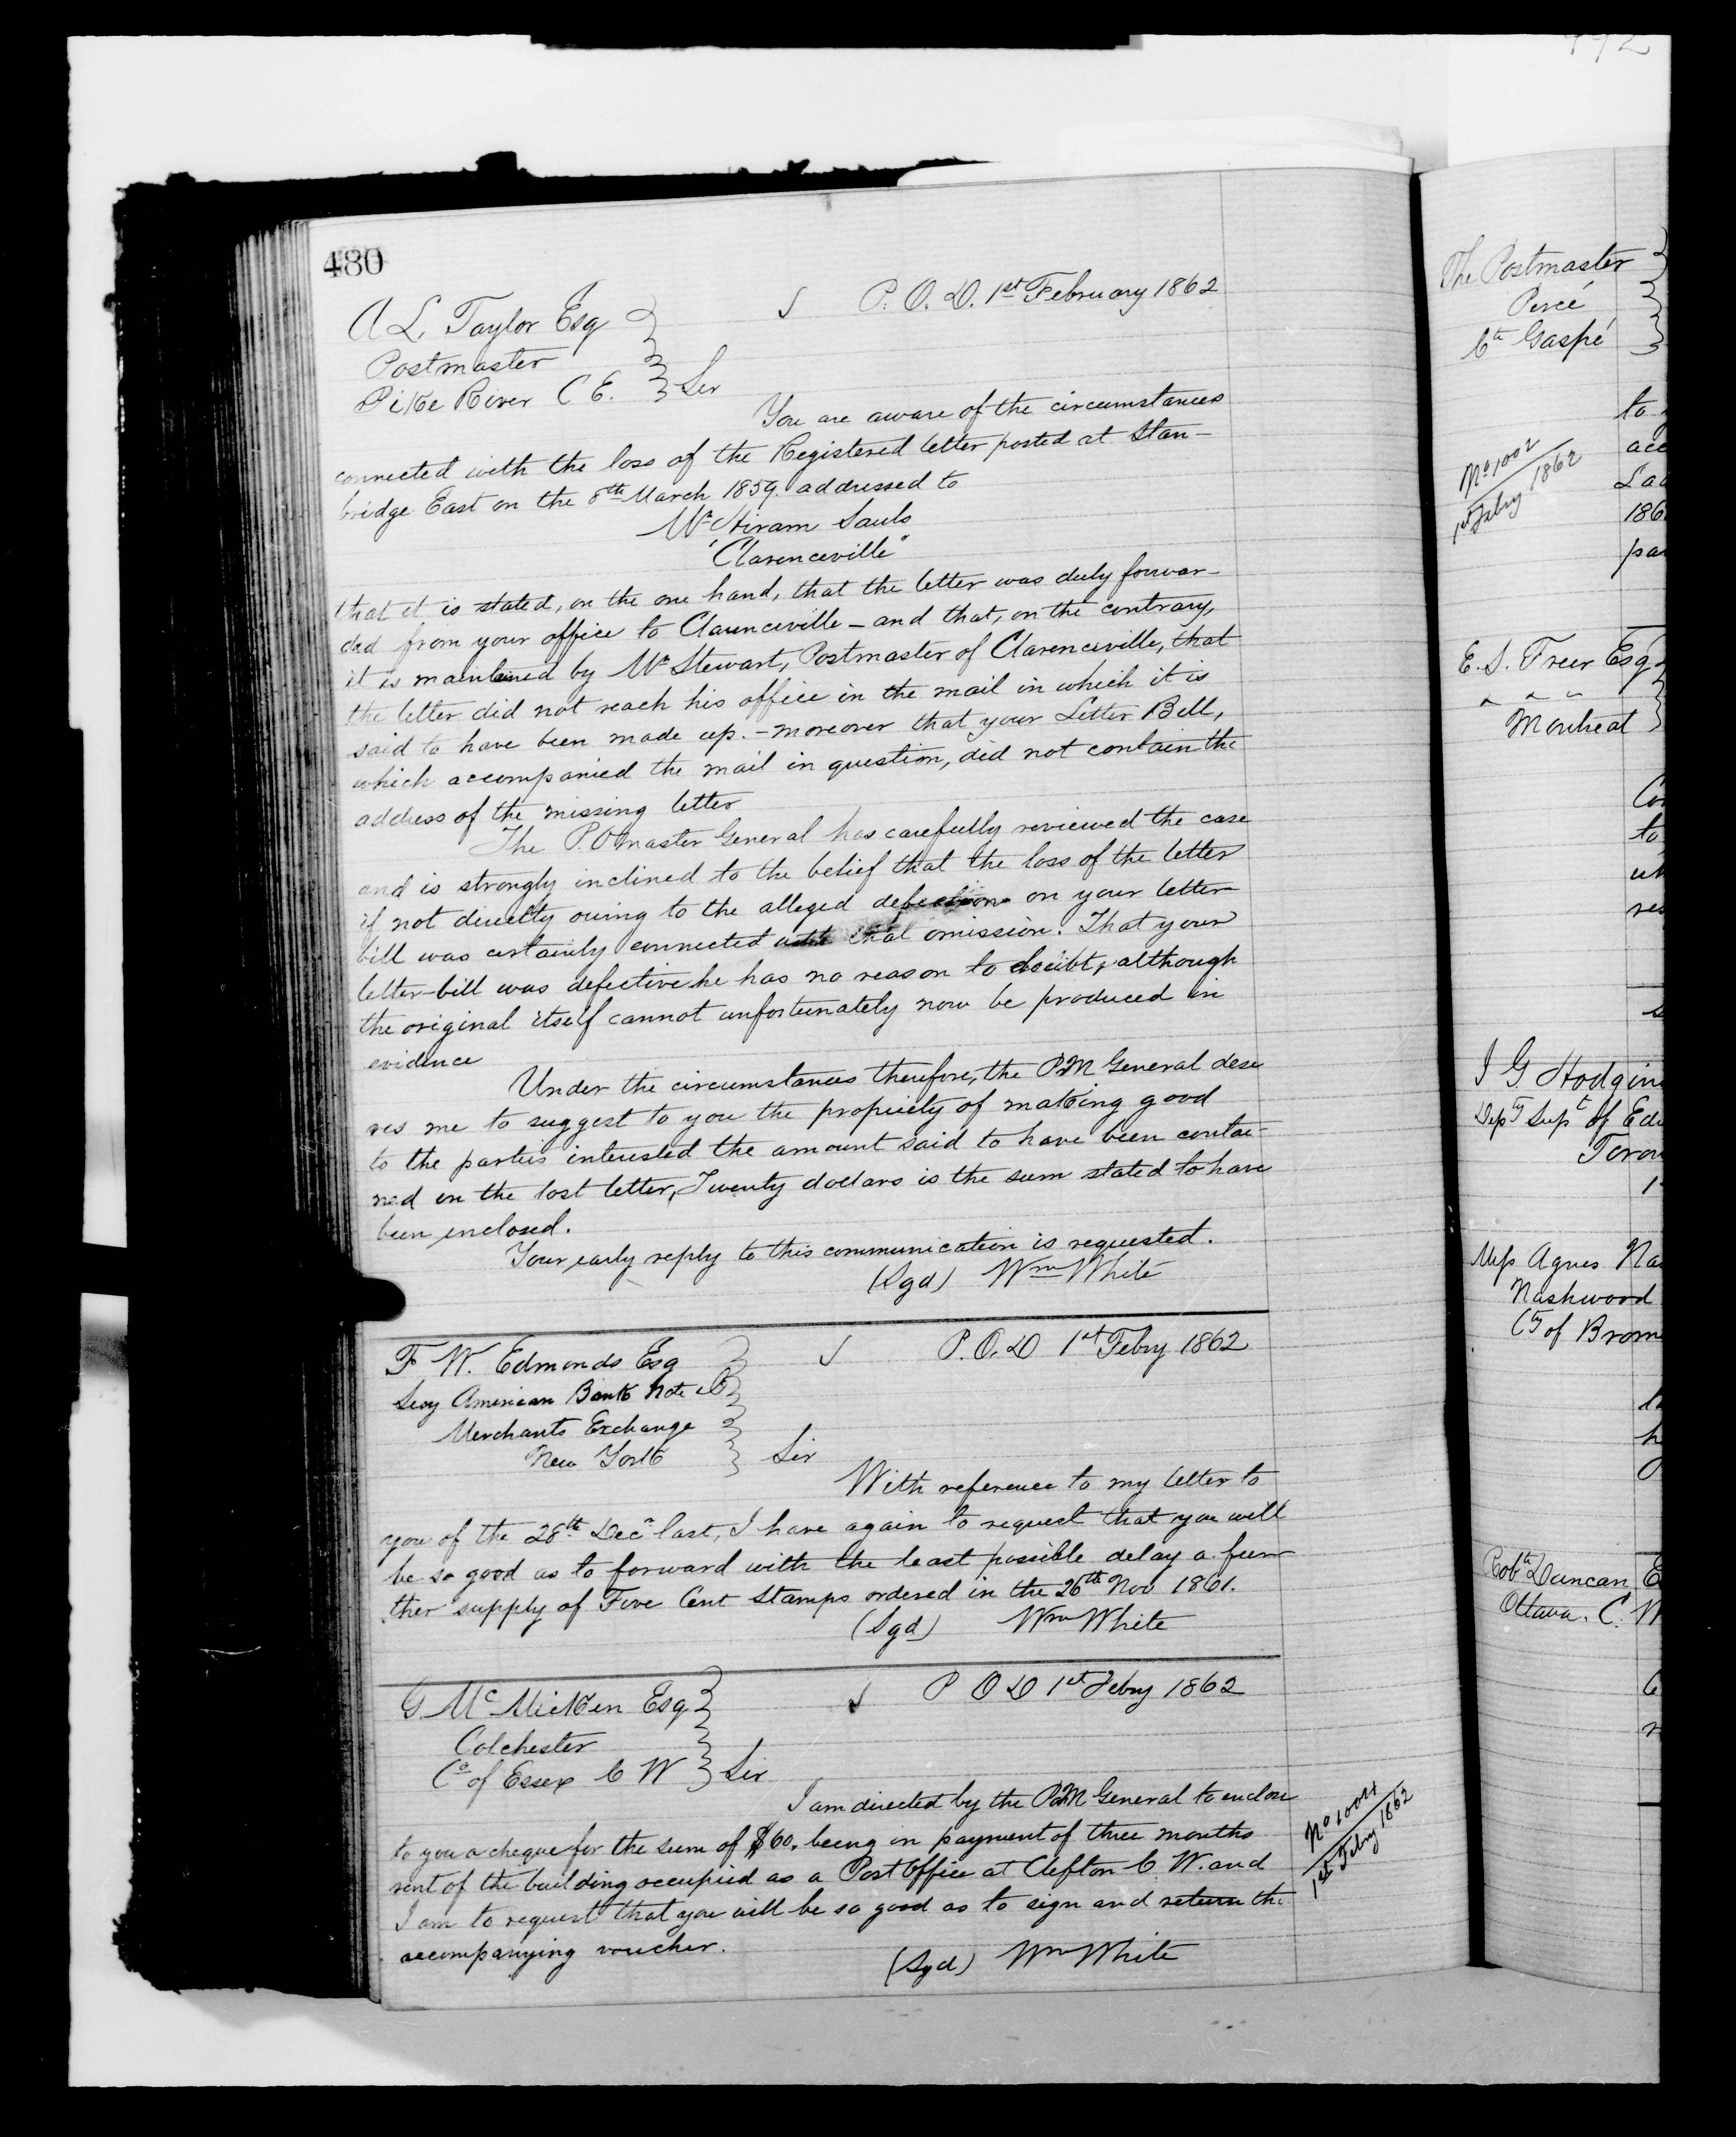 480
P. O. D. 1st February 1862
A L. Taylor Esq
Postmaster
Pike River C E.
Sir
You are aware of the circumstances
connected with the loss of the Registered letter posted at Stan-
bridge East on the 8th March 1859. addressed to
Mr Hiram Sauls
"Clarenceville"
that it is stated, on the one hand, that the letter was duly forwar-
ded from your office to Clarenceville - and that, on the contrary,
it is maintained by Mr Stewart, Postmaster of Clarenceville, that
the letter did not reach his office in the mail in which it is
said to have been made up. - moreover that your Letter Bill,
which accompanied the mail in question, did not contain the
address of the missing letter
The P.O master General has carefully reviewed the case
and is strongly inclined to the belief that the loss of the letter
if not directly owing to the alleged on your letter
bill was certainly connected with that omission. That your
letter-bill was defective he has no reason to doubt, although
the original itself cannot unfortunately now be produced in
evidence
Under the circumstances therefore, the PM General desi
res me to suggest to you the propriety of making good
to the parties interested the amount said to have been contai-
ned in the lost letter, Twenty dollars is the sum stated to have
been enclosed.
Your early reply to this communication is requested.
(Sgd) Wm White
F W. Edmonds Esq
Secy American Bank Note Co
Merchants Exchange
New York
P. O. D 1st Febry 1862
Sir
With reference to my letter to
you of the 28th Decr last, I have again to request that you will
be so good as to forward with the least possible delay a fur
ther supply of Five Cent Stamps ordered in the 26th Nov 1861.
(Sgd) Wm White
G. McMicken Esq
Colchester
Co of Essex C W
P O D 1st Febry 1862
Sir
I am directed by the PM General to enclose
to you a cheque for the sum of $60. being in payment of three months
rent of the building occupied as a Post Office at Clifton C. W. and
I am to request that you will be so good as to sign and return the
accompanying voucher.
(Sgd) Wm White
No 1004
1st Febry 1862
The Postmaster
Percé
Co Gaspé
No 1002
1st Febry 1862
to
acc
186
E. S. Freer Esq
Montreal
to
J G Hodgin
Depy Supt of Edu
Toron
Miss Agnes Na
Nashwood
Cy of Brom
Robt Duncan E
Ottawa. C. W